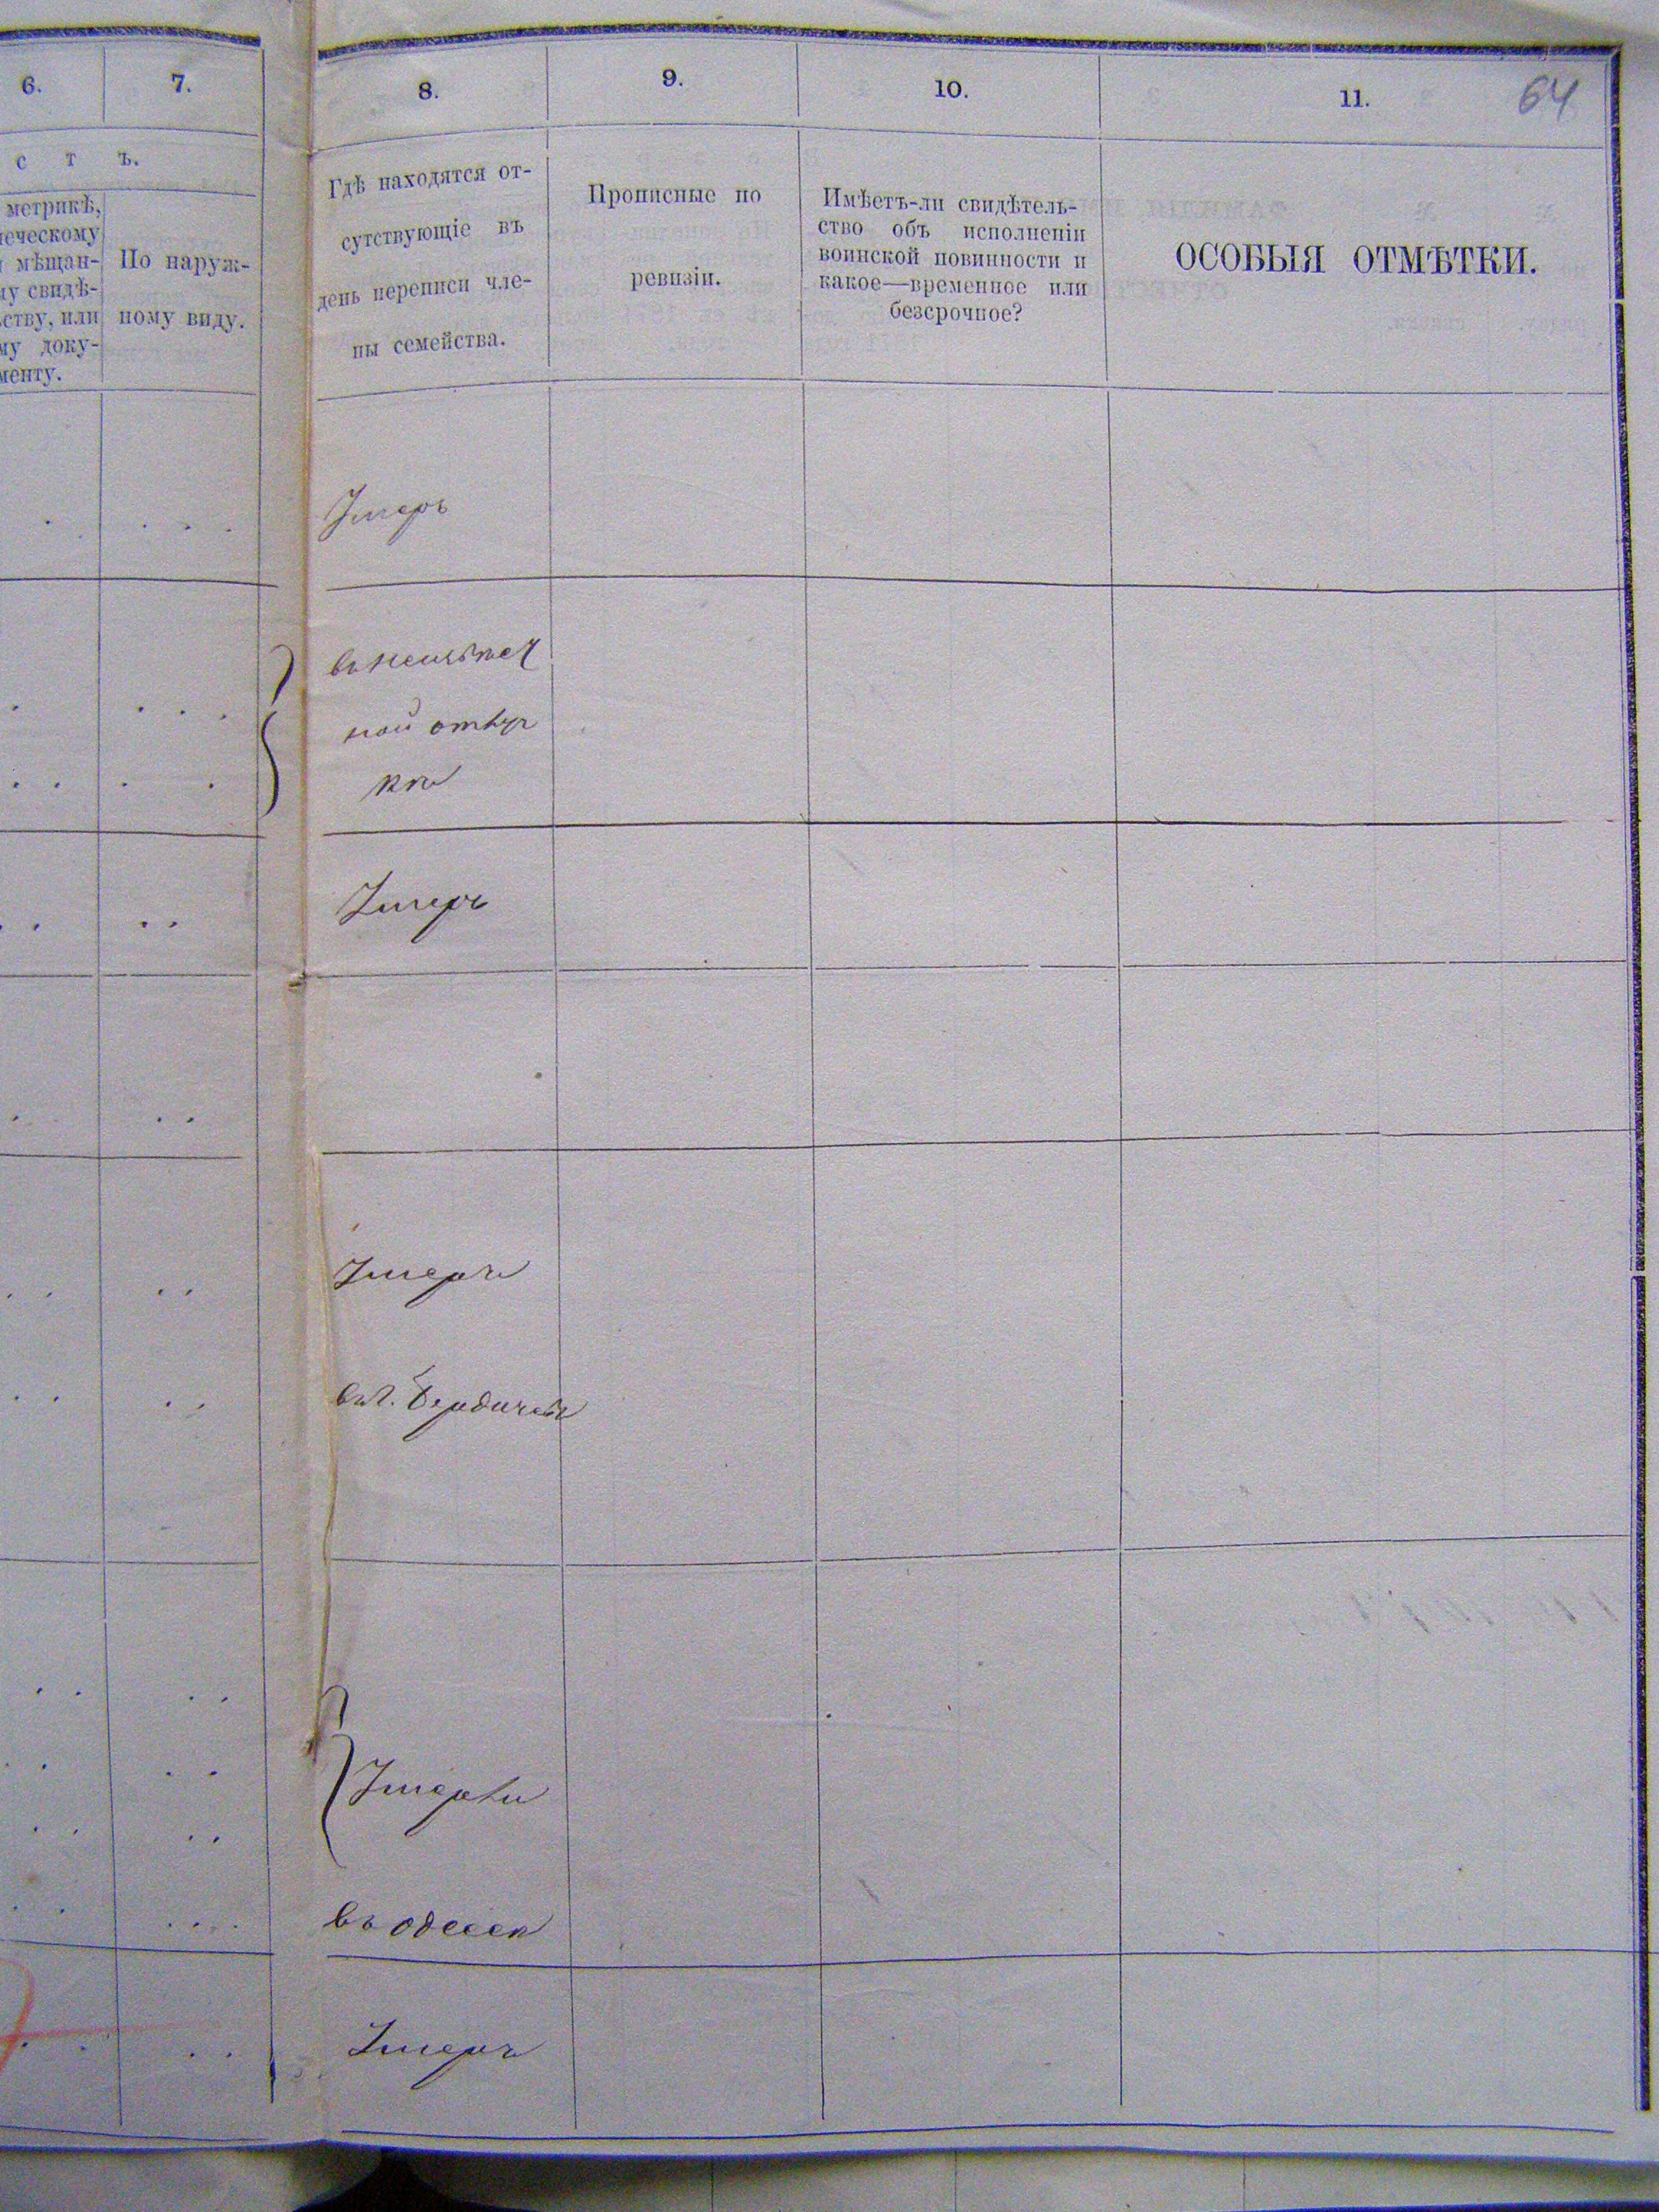 6.
7.
8.
9.
10.
11.
64
с т ъ.
метрикѣ,
ческому
мѣщан-
у свидѣ-
ству, или
му доку-
менту.
По наруж-
ному виду.
Гдѣ находятся от-
сутствующіе въ
день переписи чле-
ны семейства.
Прописные по
ревизіи.
Имѣетъ-ли свидѣтель-
ство объ исполненіи
воинской повинности и
какое—временное или
безсрочное?
ОСОБЫЯ ОТМѢТКИ.
Умеръ
въ неизвѣст
ной отлуч
кѣ
Умеръ
Умеръ
въ г. Бердичевѣ
Умерли
въ одессѣ
Умеръ